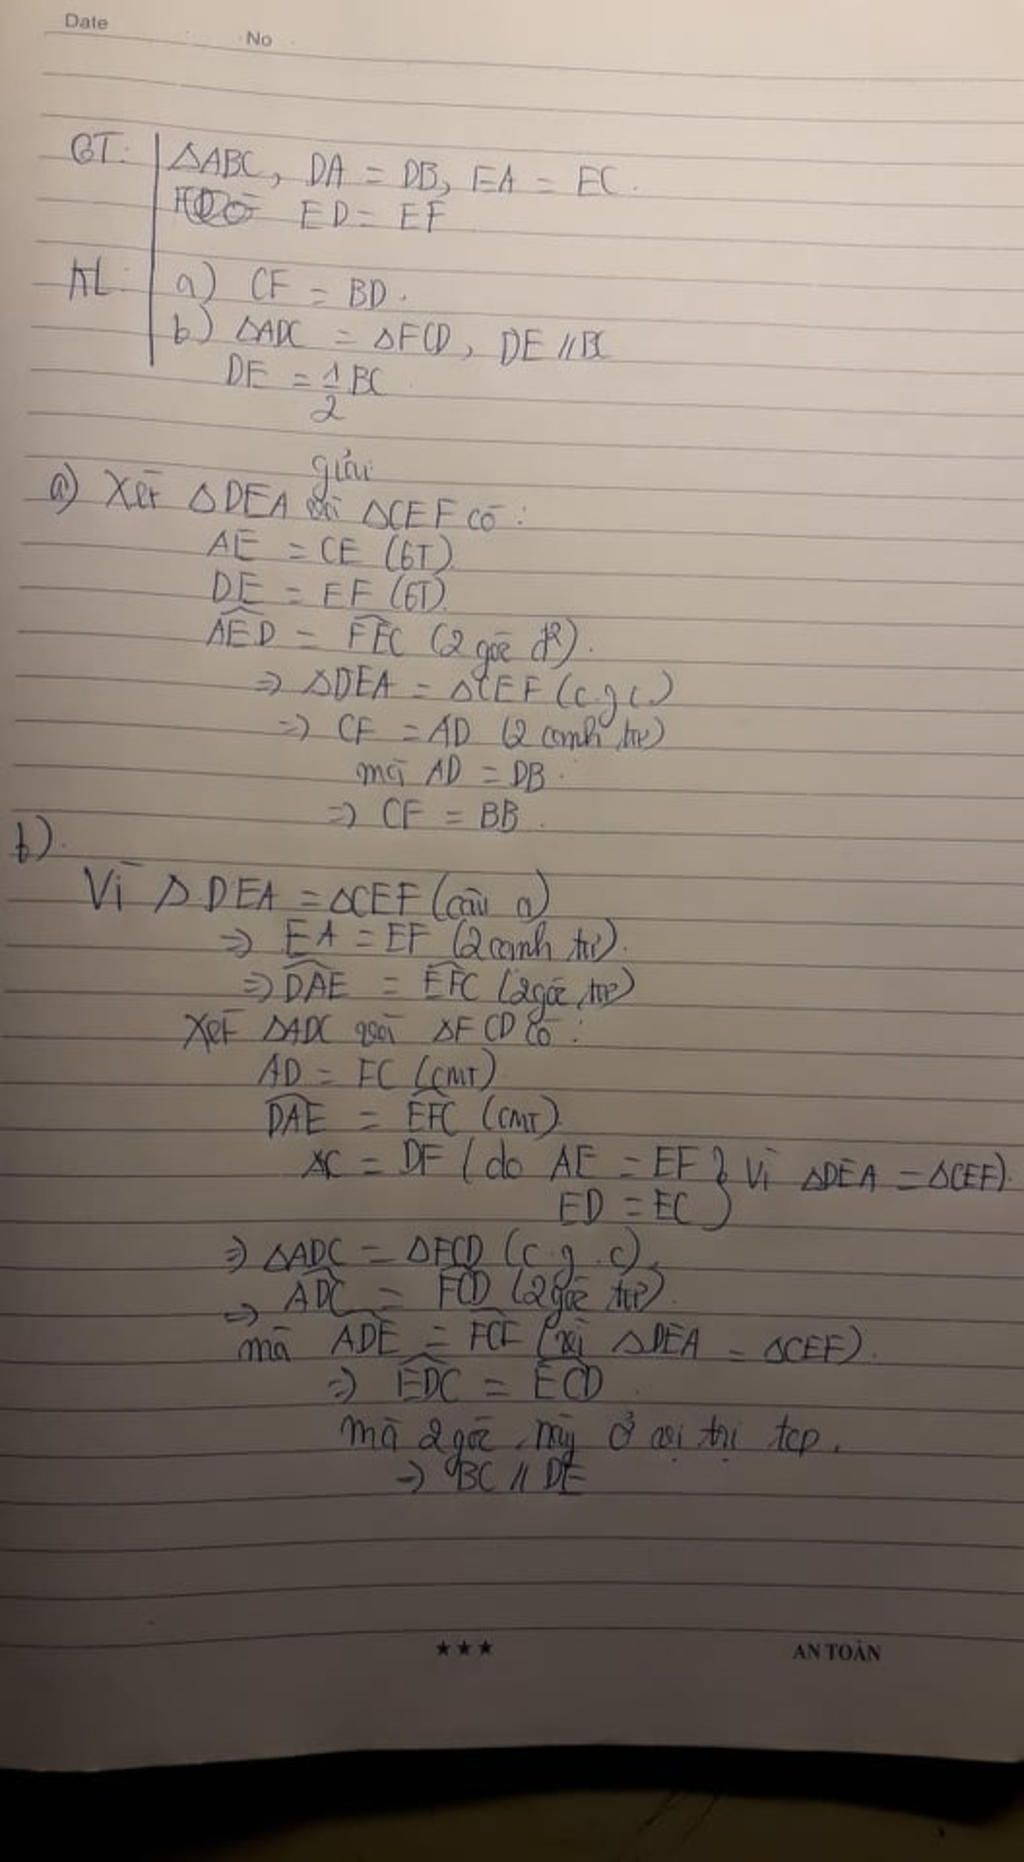 Date
No
GT: ΔABC, DA = DB, EA = EC.
ED = EF
KL: a) CF = BD.
b) ΔADC = ΔFCD, DE // BC
DE = 1/2 BC
giải
a) Xét ΔDEA và ΔCEF có:
AE = CE (GT)
DE = EF (GT)
∠AED = ∠FEC (2 góc đ²).
⇒ ΔDEA = ΔCEF (c.g.c)
⇒ CF = AD (2 cạnh tư)
mà AD = DB.
⇒ CF = BB.
b).
Vì ΔDEA = ΔCEF (câu a)
⇒ EA = EF (2 cạnh tư).
⇒ ∠DAE = ∠EFC (2 góc tư)
Xét ΔADC và ΔFCD có:
AD = FC (CMT)
∠DAE = ∠EFC (CMT)
AC = DF (do AE = EF } Vì ΔDEA = ΔCEF).
ED = EC }
⇒ ΔADC = ΔFCD (c.g.c),
⇒ ∠ADC = ∠FCD (2 góc tư).
mà ∠ADE = ∠FCE (vì ΔDEA = ΔCEF).
⇒ ∠EDC = ∠ECD
mà 2 góc này ở vị trí tcp.
⇒ BC // DE
★★★
AN TOÀN